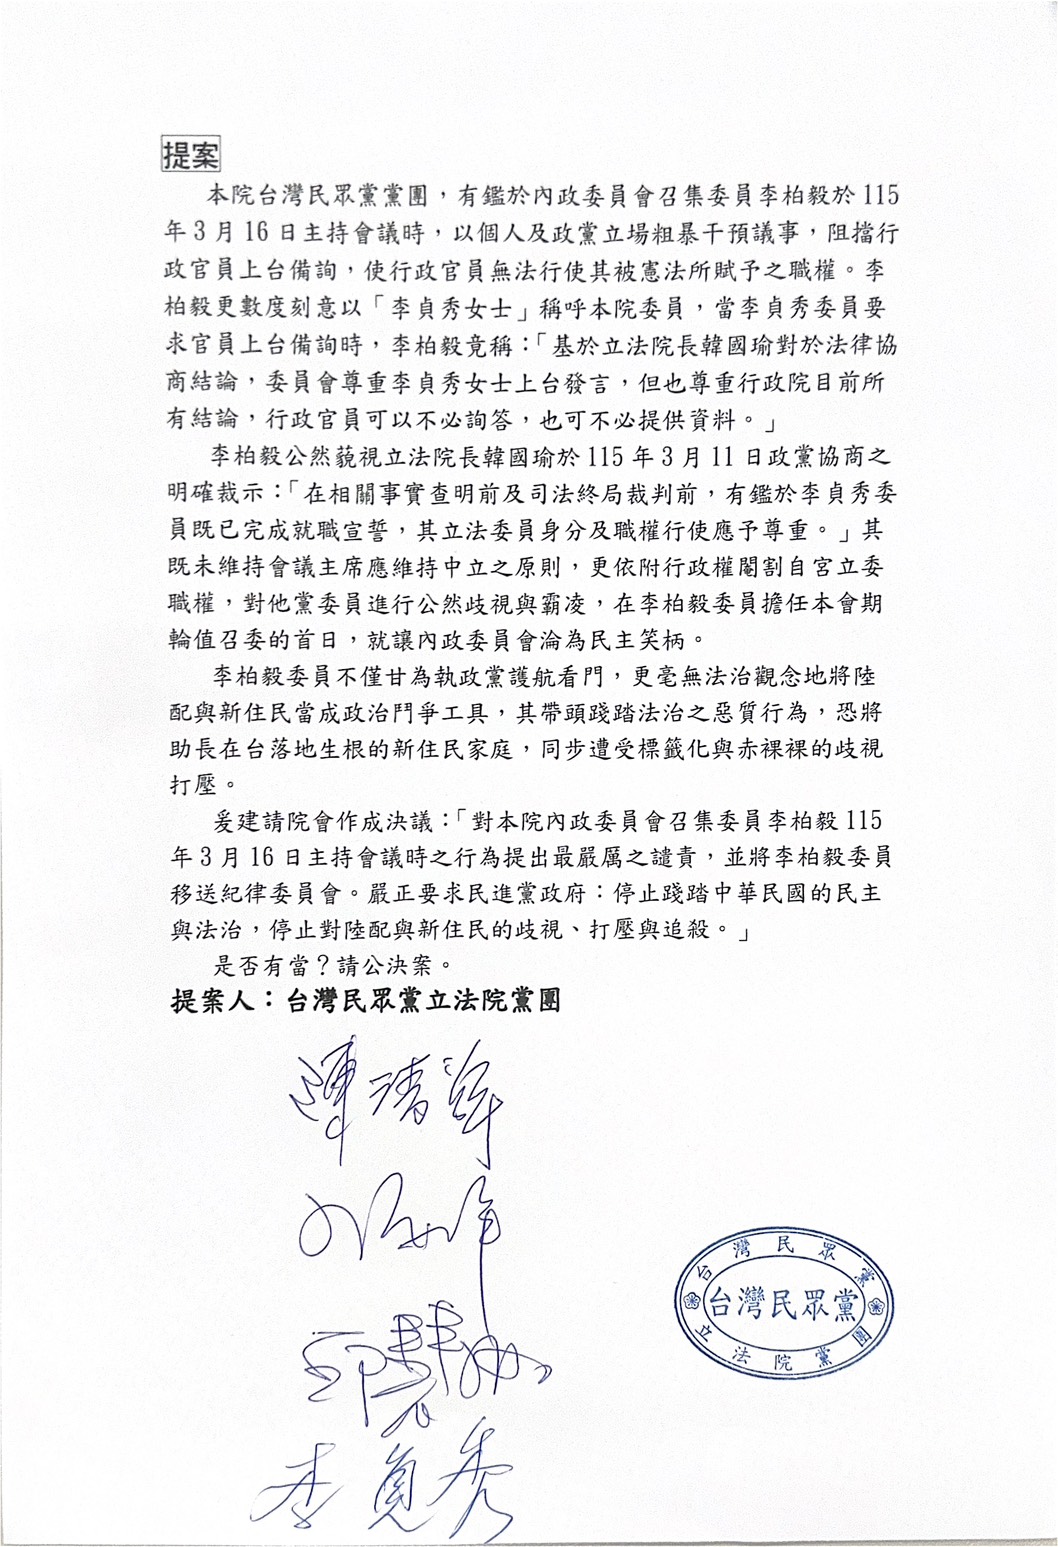 提案
本院台灣民眾黨黨團，有鑑於內政委員會召集委員李柏毅於115
年3月16日主持會議時，以個人及政黨立場粗暴干預議事，阻擋行
政官員上台備詢，使行政官員無法行使其被憲法所賦予之職權。李
柏毅更數度刻意以「李貞秀女士」稱呼本院委員，當李貞秀委員要
求官員上台備詢時，李柏毅竟稱：「基於立法院長韓國瑜對於法律協
商結論，委員會尊重李貞秀女士上台發言，但也尊重行政院目前所
有結論，行政官員可以不必詢答，也可不必提供資料。」
李柏毅公然藐視立法院長韓國瑜於115年3月11日政黨協商之
明確裁示：「在相關事實查明前及司法終局裁判前，有鑑於李貞秀委
員既已完成就職宣誓，其立法委員身分及職權行使應予尊重。」其
既未維持會議主席應維持中立之原則，更依附行政權閹割自宮立委
職權，對他黨委員進行公然歧視與霸凌，在李柏毅委員擔任本會期
輪值召委的首日，就讓內政委員會淪為民主笑柄。
李柏毅委員不僅甘為執政黨護航看門，更毫無法治觀念地將陸
配與新住民當成政治鬥爭工具，其帶頭踐踏法治之惡質行為，恐將
助長在台落地生根的新住民家庭，同步遭受標籤化與赤裸裸的歧視
打壓。
爰建請院會作成決議：「對本院內政委員會召集委員李柏毅115
年3月16日主持會議時之行為提出最嚴厲之譴責，並將李柏毅委員
移送紀律委員會。嚴正要求民進黨政府：停止踐踏中華民國的民主
與法治，停止對陸配與新住民的歧視、打壓與追殺。」
是否有當？請公決案。
提案人：台灣民眾黨立法院黨團
陳清龍
邱慧洳
李貞秀
台灣民眾黨
台灣民眾黨
立法院黨團